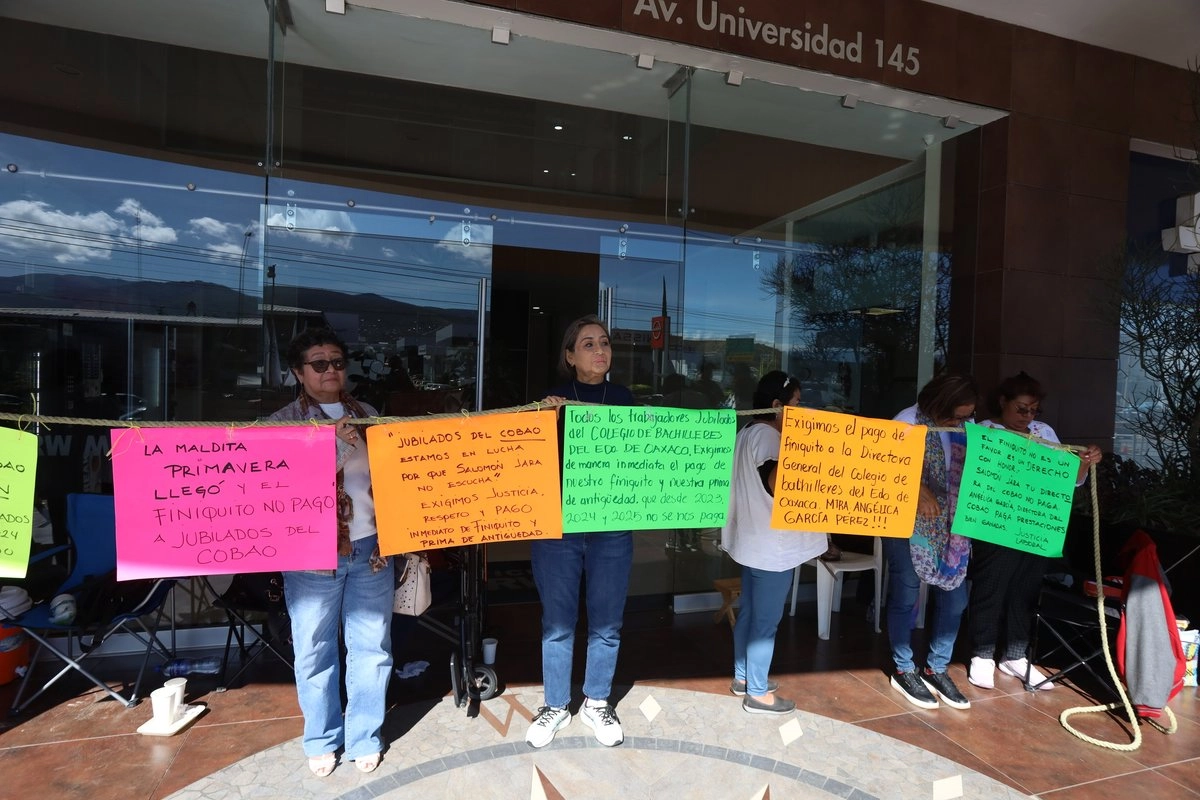 Av. Universidad 145
LA MALDITA
PRIMAVERA
LLEGÓ Y EL
FINIQUITO NO PAGÓ
A JUBILADOS DEL
COBAO
"JUBILADOS DEL COBAO
ESTAMOS EN LUCHA
POR QUE SALOMÓN JARA
NO ESCUCHA"
EXIGIMOS JUSTICIA,
RESPETO Y PAGO
INMEDIATO DE FINIQUITO Y
PRIMA DE ANTIGUEDAD.
Todos los trabajadores Jubilados
del COLEGIO DE BACHILLERES
DEL EDO. DE OAXACA, Exigimos
de manera inmediata el pago de
nuestro finiquito y nuestra prima
de antigüedad, que desde 2023,
2024 y 2025 no se nos paga
Exigimos el pago de
finiquito a la Directora
General del Colegio de
bachilleres del Edo de
Oaxaca. MTRA. ANGÉLICA
GARCÍA PEREZ!!!
EL FINIQUITO NO ES UN
FAVOR ES UN DERECHO
CON HONOR.
JARA TU DIRECTO
RA DEL COBAO NO PAGA.
ANGÉLICA GARCÍA, DIRECTORA DEL
COBAO PAGA PRESTACIONES
BIEN GANADAS
JUSTICIA
LABORAL